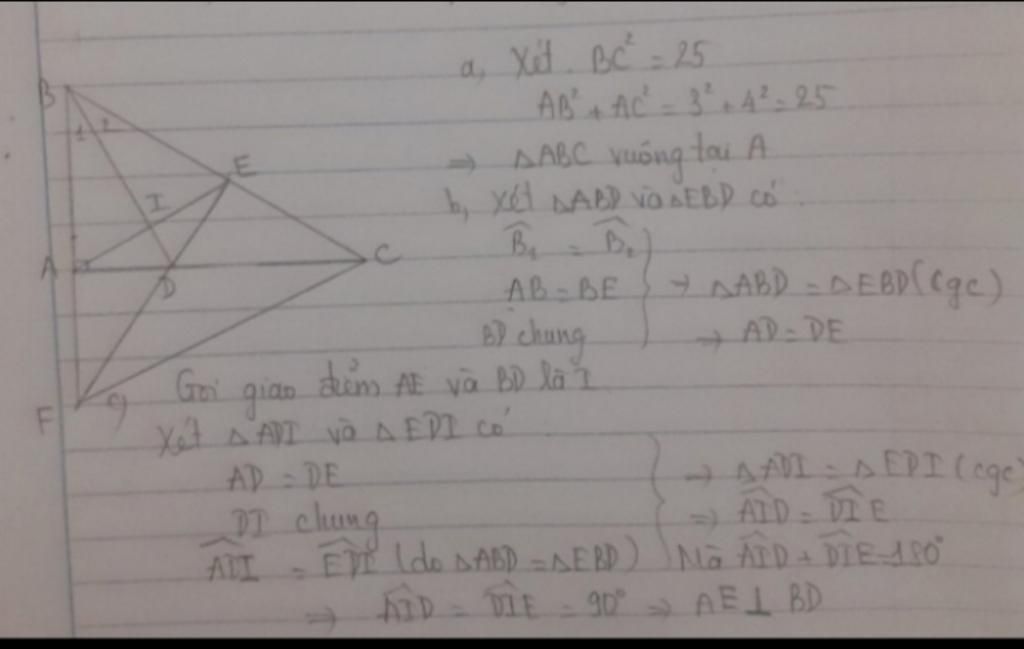 a, Xét. BC² = 25
AB² + AC² = 3² + 4² = 25
⇒ △ABC vuông tại A
b, Xét △ABD và △EBD có:
B̂₁ = B̂₂
AB = BE
BD chung
→ △ABD = △EBD (cgc)
→ AD = DE
B
1 2
E
I
A
D
C
F
c) Gọi giao điểm AE và BD là I
Xét △ADI và △EDI có
AD = DE
DI chung
ADI = EDI (do △ABD = △EBD)
→ △ADI = △EDI (cgc
⇒ AID = DIE
Mà AID + DIE = 180°
⇒ AID = DIE = 90° ⇒ AE ⊥ BD